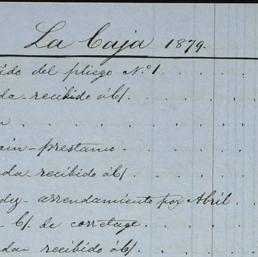 La Caja 1879.
ido del pliego Nº 1
da recibido o/b/.
n
ain - prestamo
da recibido o/b/.
dez - arrendamiento por Abril.
- b/. de corretage
da - recibido o/b/.